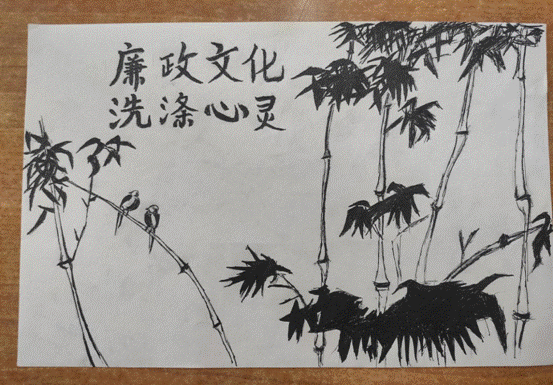 廉政文化
洗涤心灵